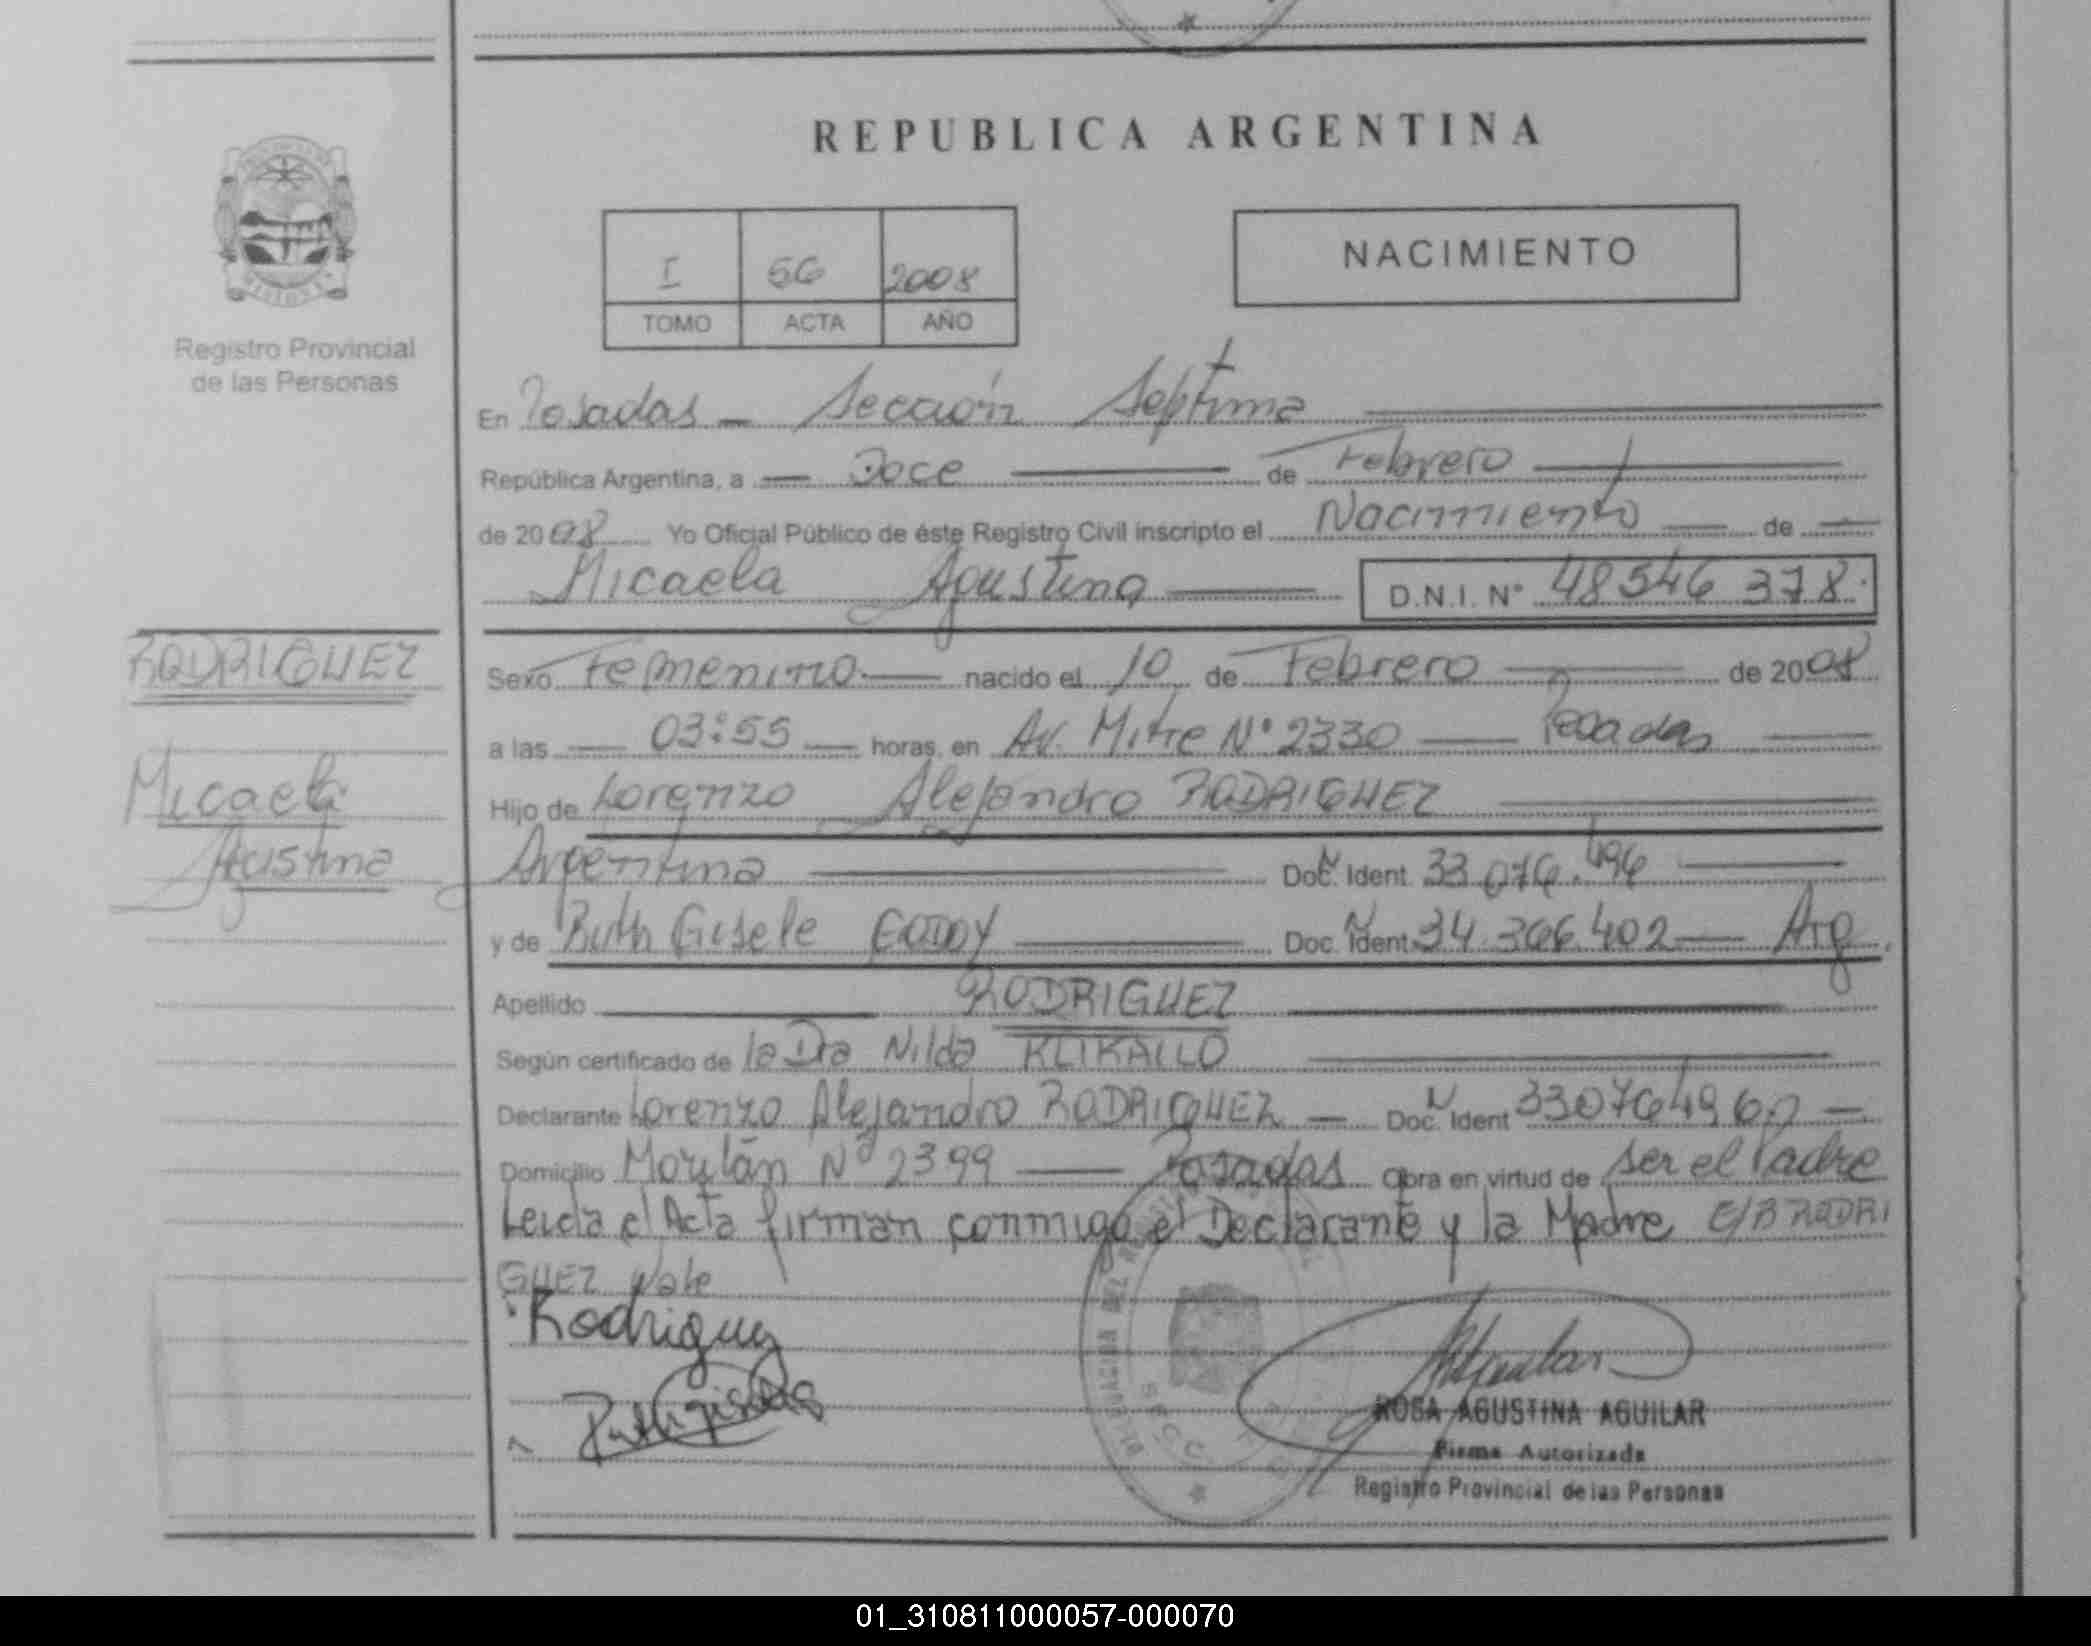 REPUBLICA ARGENTINA
I 56 2008
TOMO ACTA AÑO
NACIMIENTO
Registro Provincial
de las Personas
En Posadas - Sección Septima
República Argentina, a Doce de Febrero
de 2008 Yo Oficial Público de éste Registro Civil inscripto el Nacimiento de
Micaela Agustina D.N.I. N° 48546378
RODRIGUEZ
Micaela
Agustina
Sexo Femenino nacido el 10 de Febrero de 2008
a las 03:55 horas, en Av. Mitre N° 2330 Posadas
Hijo de Lorenzo Alejandro RODRIGUEZ
Argentina Doc. Ident. 33.076.496
y de Ruth Gisele GODOY Doc. Ident. 34.366.402 Arg.
Apellido RODRIGUEZ
Según certificado de la Dra Nilda
Declarante Lorenzo Alejandro RODRIGUEZ Doc. Ident
Domicilio N° 2399 Posadas Obra en virtud de ser el Padre
Leida el Acta firman conmigo el Declarante y la Madre E/B RODRI
GUEZ Vale
Rodriguez
ROSA AGUSTINA AGUILAR
Firma Autorizada
Registro Provincial de las Personas
01_310811000057-000070